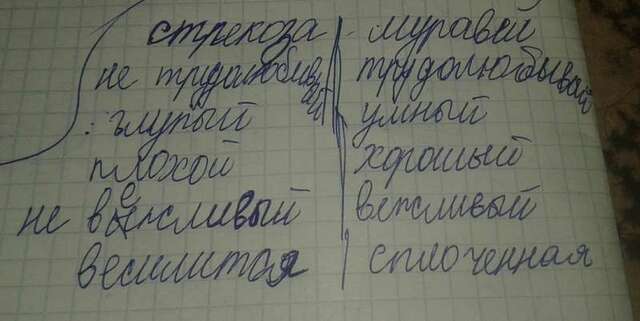 стрекоза муравей
не трудолюбивый трудолюбывай
глупый умный
плохой хорошый
не вежливый вежливый
весилится сплоченная